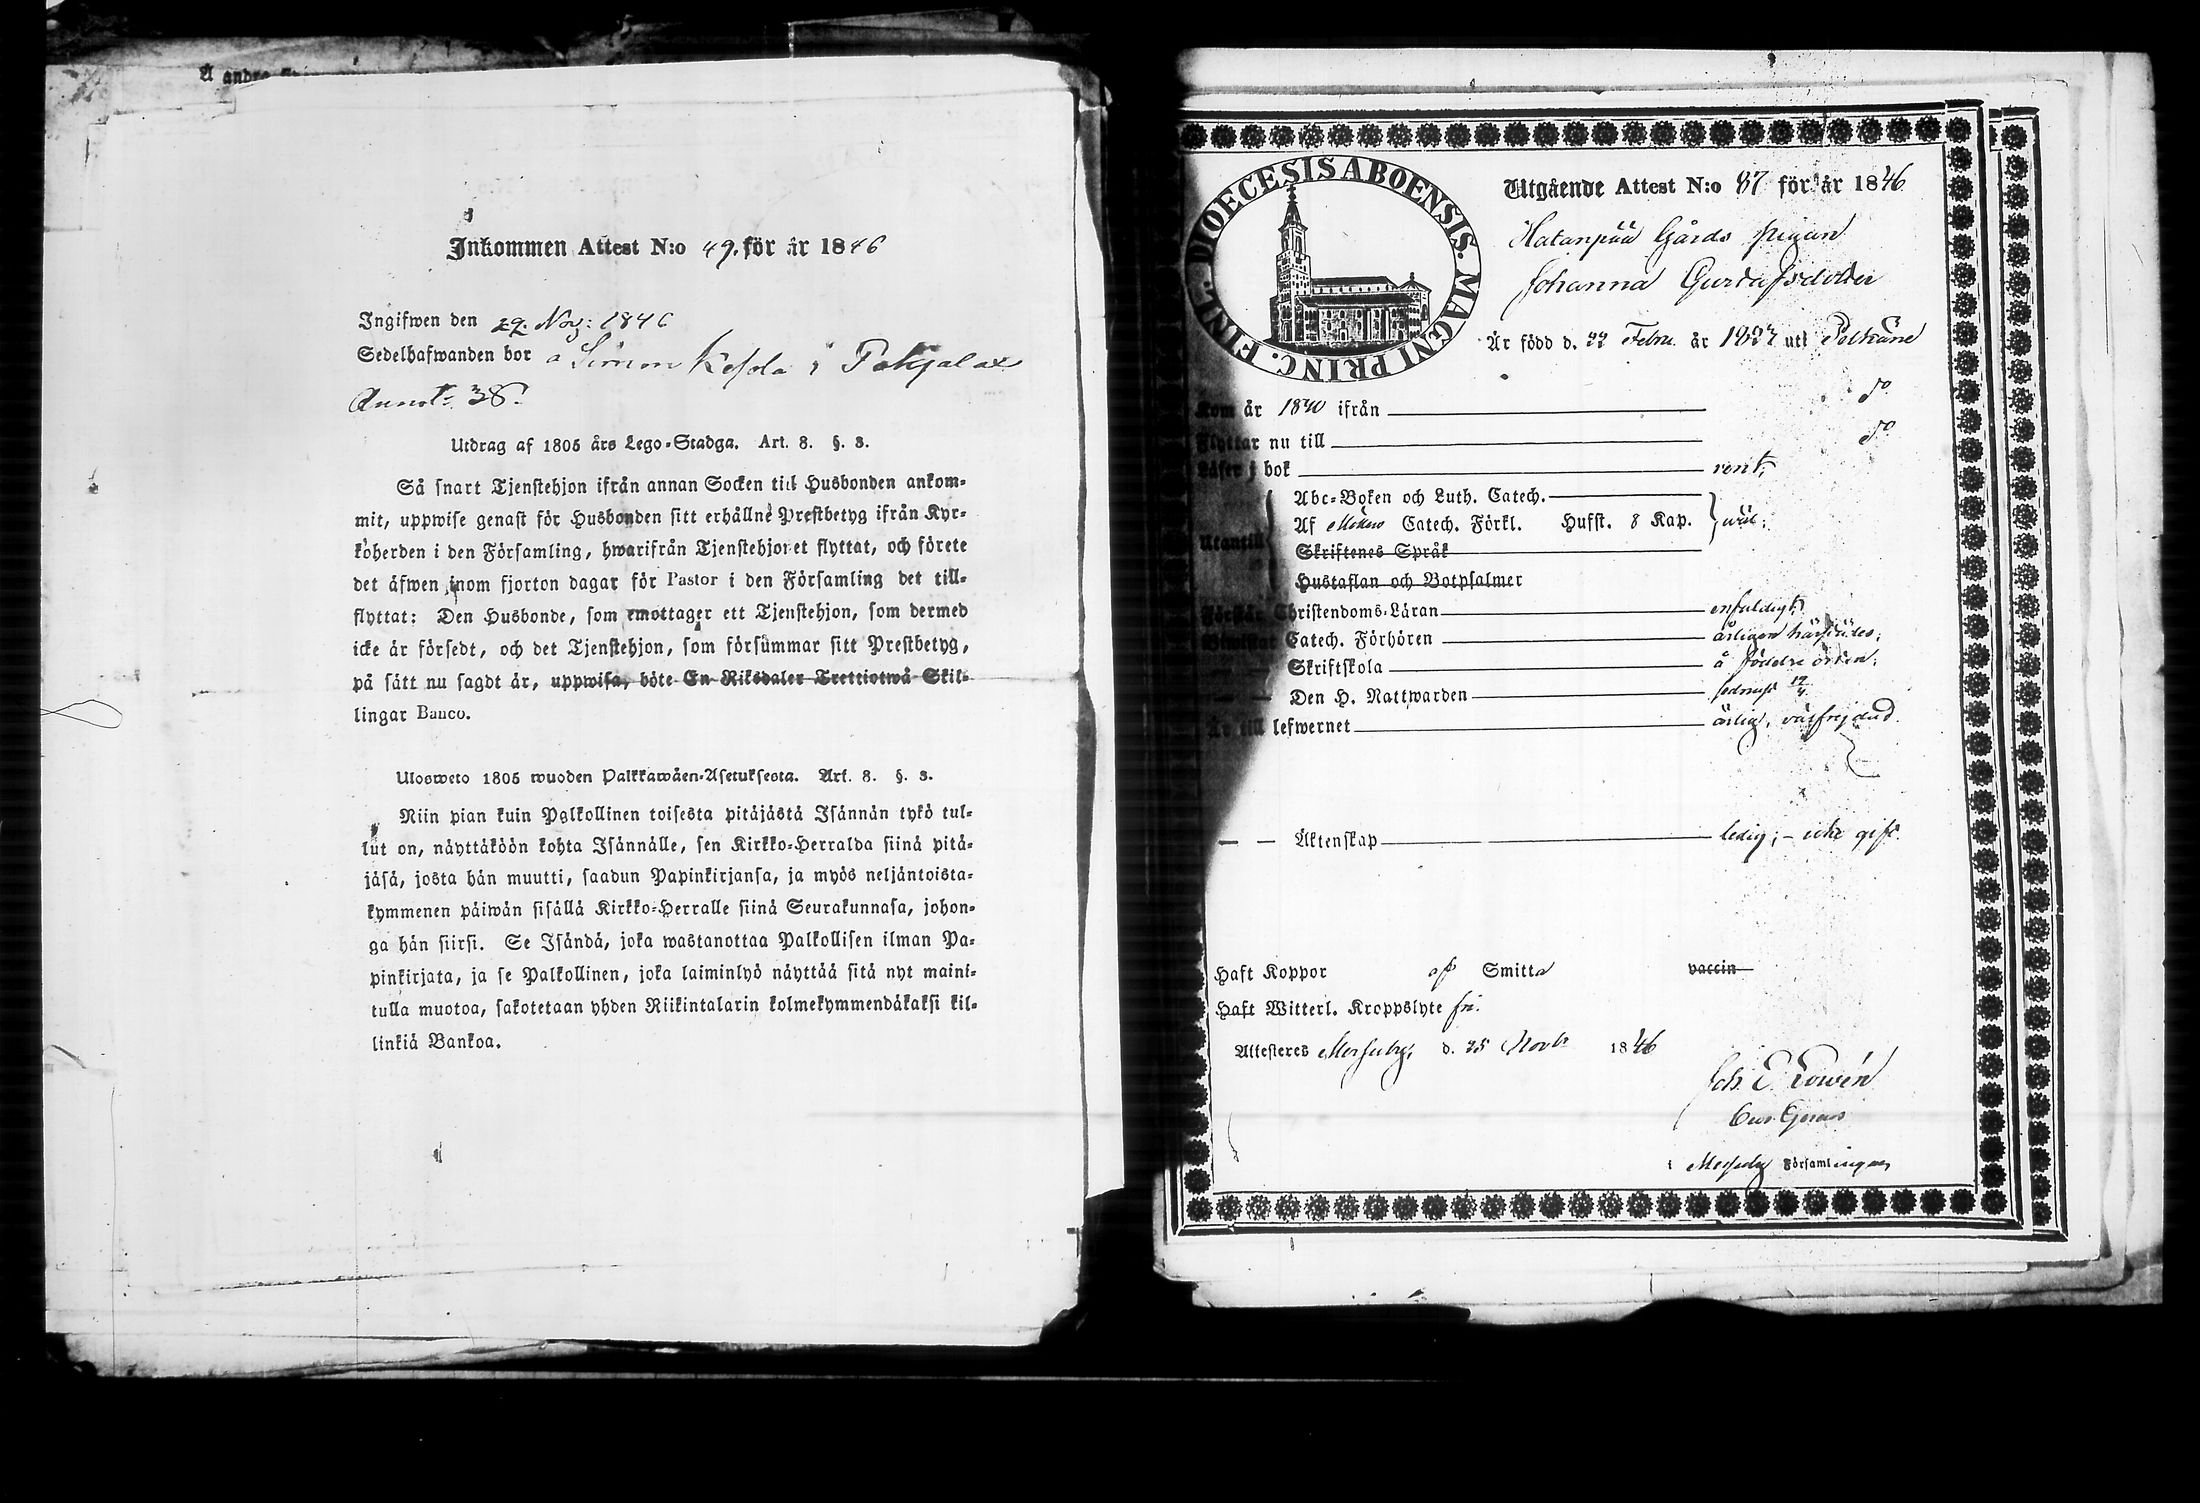 Å andra
Inkommen Attest N:o 49. för år 1846
Ingifwen den 29. Nov: 1846
Sedelhafwanden bor å Simon Kesola i Pohjalax
38.
Utdrag af 1805 års Lego-Stadga. Art. 8. §. 3.
Så snart Tjenstehjon ifrån annan Socken till Husbonden ankom-
mit, uppwise genast för Husbonden sitt erhållne Prestbetyg ifrån Kyr-
koherden i den Församling, hwarifrån Tjenstehjonet flyttat, och förete
det äfwen inom fjorton dagar för Pastor i den Församling det till-
flyttat: Den Husbonde, som emottager ett Tjenstehjon, som dermed
icke är försedt, och det Tjenstehjon, som försummar sitt Prestbetyg,
på sätt nu sagdt är, uppwisa, böte En Riksdaler Trettiotwå Skil-
lingar Banco.
Ulosweto 1805 wuoden Palkkawäen-Asetuksesta. Art. 8. §. 3.
Niin pian kuin Palkollinen toisesta pitäjästä Isännän tykö tul-
lut on, näyttäköön kohta Isännälle, sen Kirkko-Herralda siinä pitä-
jäsä, josta hän muutti, saadun Papinkirjansa, ja myös neljäntoista-
kymmenen päiwän sisällä Kirkko-Herralle siinä Seurakunnasa, johon-
ga hän siirsi. Se Isändä, joka wastanottaa Palkollisen ilman Pa-
pinkirjata, ja se Palkollinen, joka laiminlyö näyttää sitä nyt maini-
tulla muotoa, sakotetaan yhden Riikintalarin kolmekymmendäkaksi kil-
linkiä Bankoa.
DIOECESIS ABOENSIS. MAGNI PRINC. FINL.
Utgående Attest N:o 87 för år 1846
Hatanpää Gårds pigan
Johanna Gustafsdotter
Är född d. 22 Febru. år 1827 uti Pelkäne
Kom år 1840 ifrån do
Flyttar nu till do
Läser i bok rent;
Utantill
Abc-Boken och Luth. Catech.
Af Möllers Catech. Förkl. Husst. 8 Kap. wäl;
Skriftenes Språk
Hustaflan och Botpsalmer
Förstår Christendoms-Läran enfaldigt;
Biwistat Catech. Förhören årligen härstädes;
— — Skriftskola å födelse orten;
— — Den H. Nattwarden sednast 19/4.
Är till lefwernet ärlig, välfrejdad.
— — Äktenskap ledig; – icke gift
Haft Koppor af Smitta vaccin
Haft Witterl. Kroppslyte fri.
Attesteres Messuby, d. 25 Novbr 1846
Joh. E. Lowén
i Messuby Församlingen